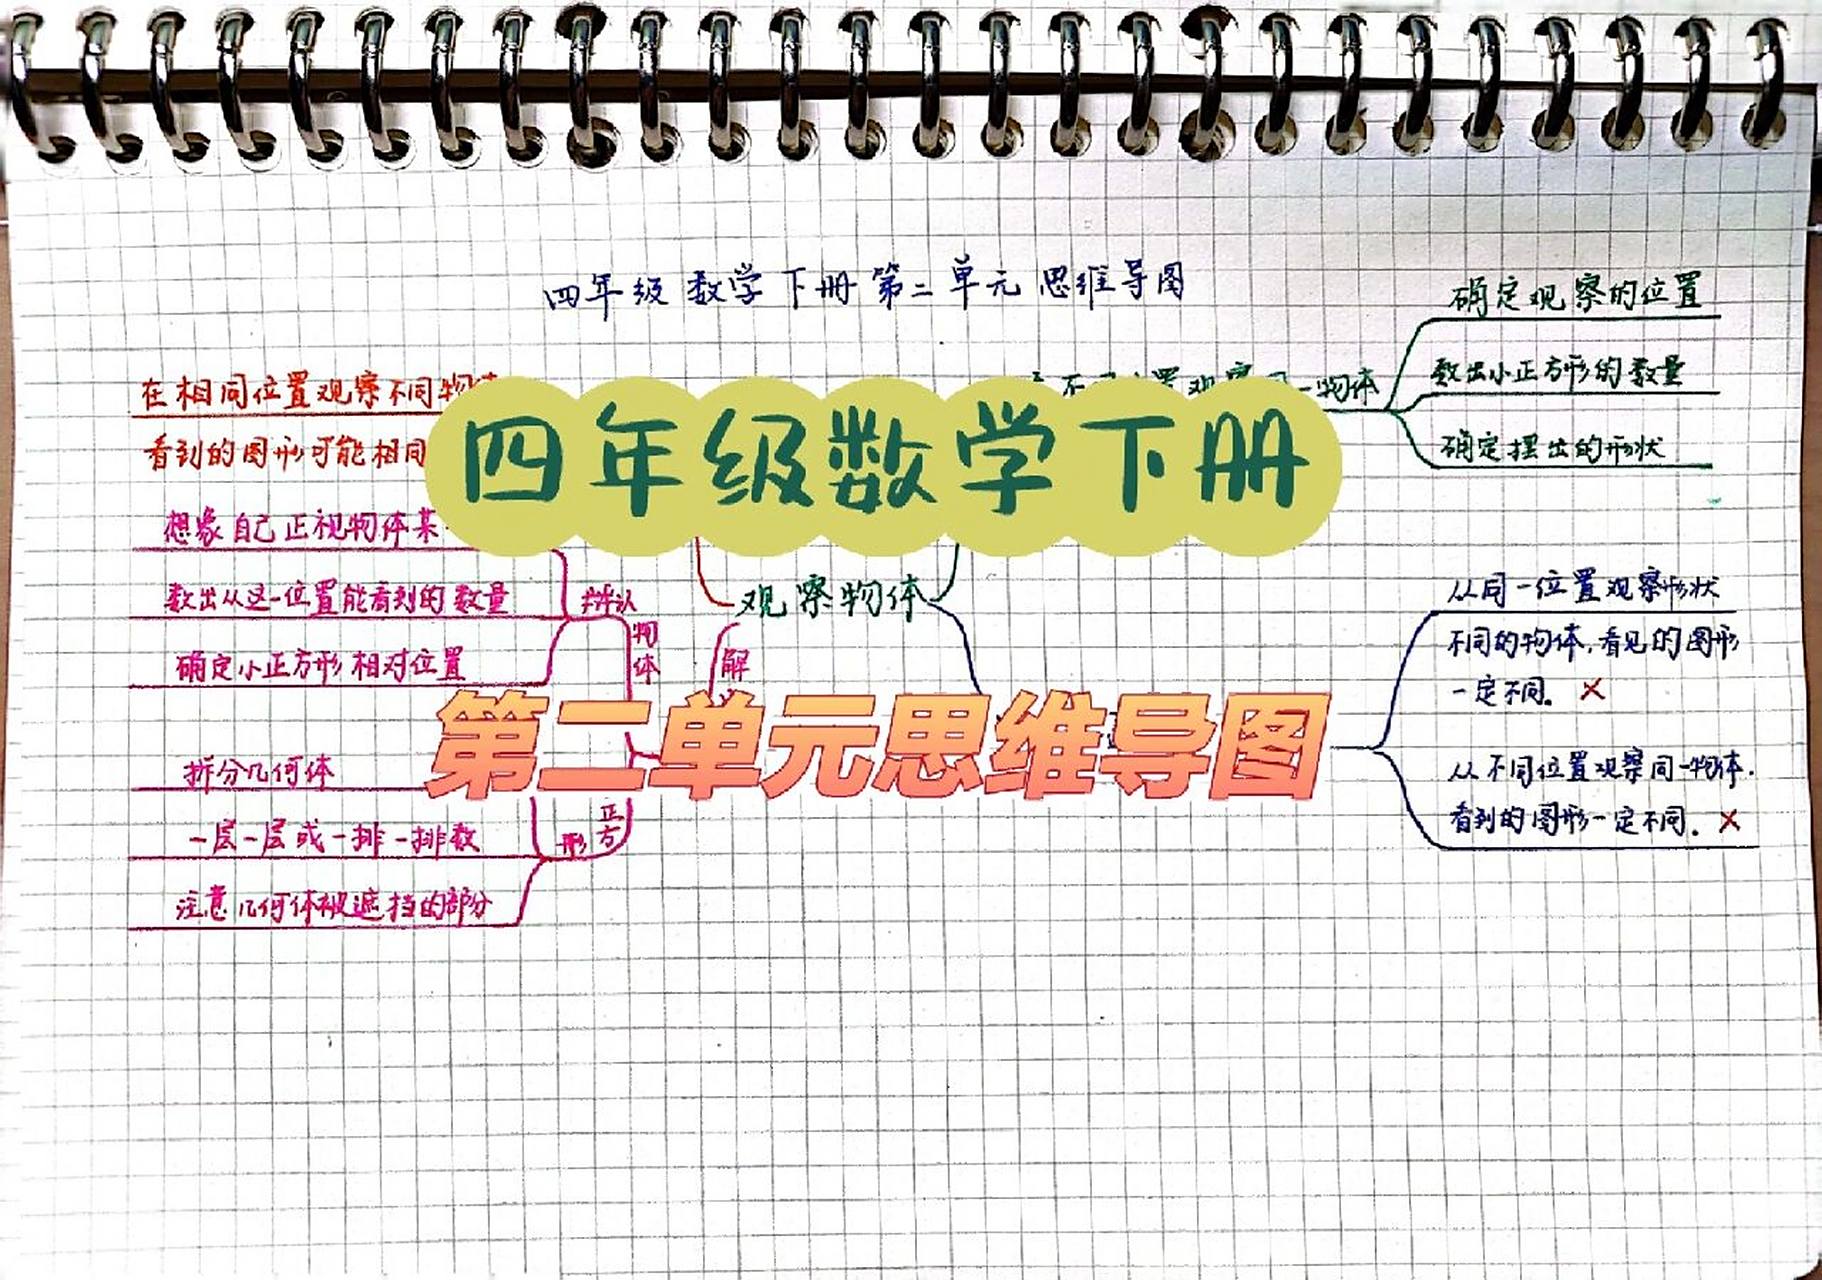 四年级数学下册第二单元思维导图
四年级数学下册
第二单元思维导图
在相同位置观察不同物
看到的图形可能相同
想象自己正视物体某
数出从这一位置能看到的数量
确定小正方形相对位置
辨认
物体
拆分几何体
一层一层或一排一排数
注意几何体被遮挡的部分
正方
形
观察物体
解
一物体
确定观察的位置
数出小正方形的数量
确定摆出的形状
从同一位置观察形状
不同的物体,看见的图形
一定不同。×
从不同位置观察同一物体.
看到的图形一定不同。×